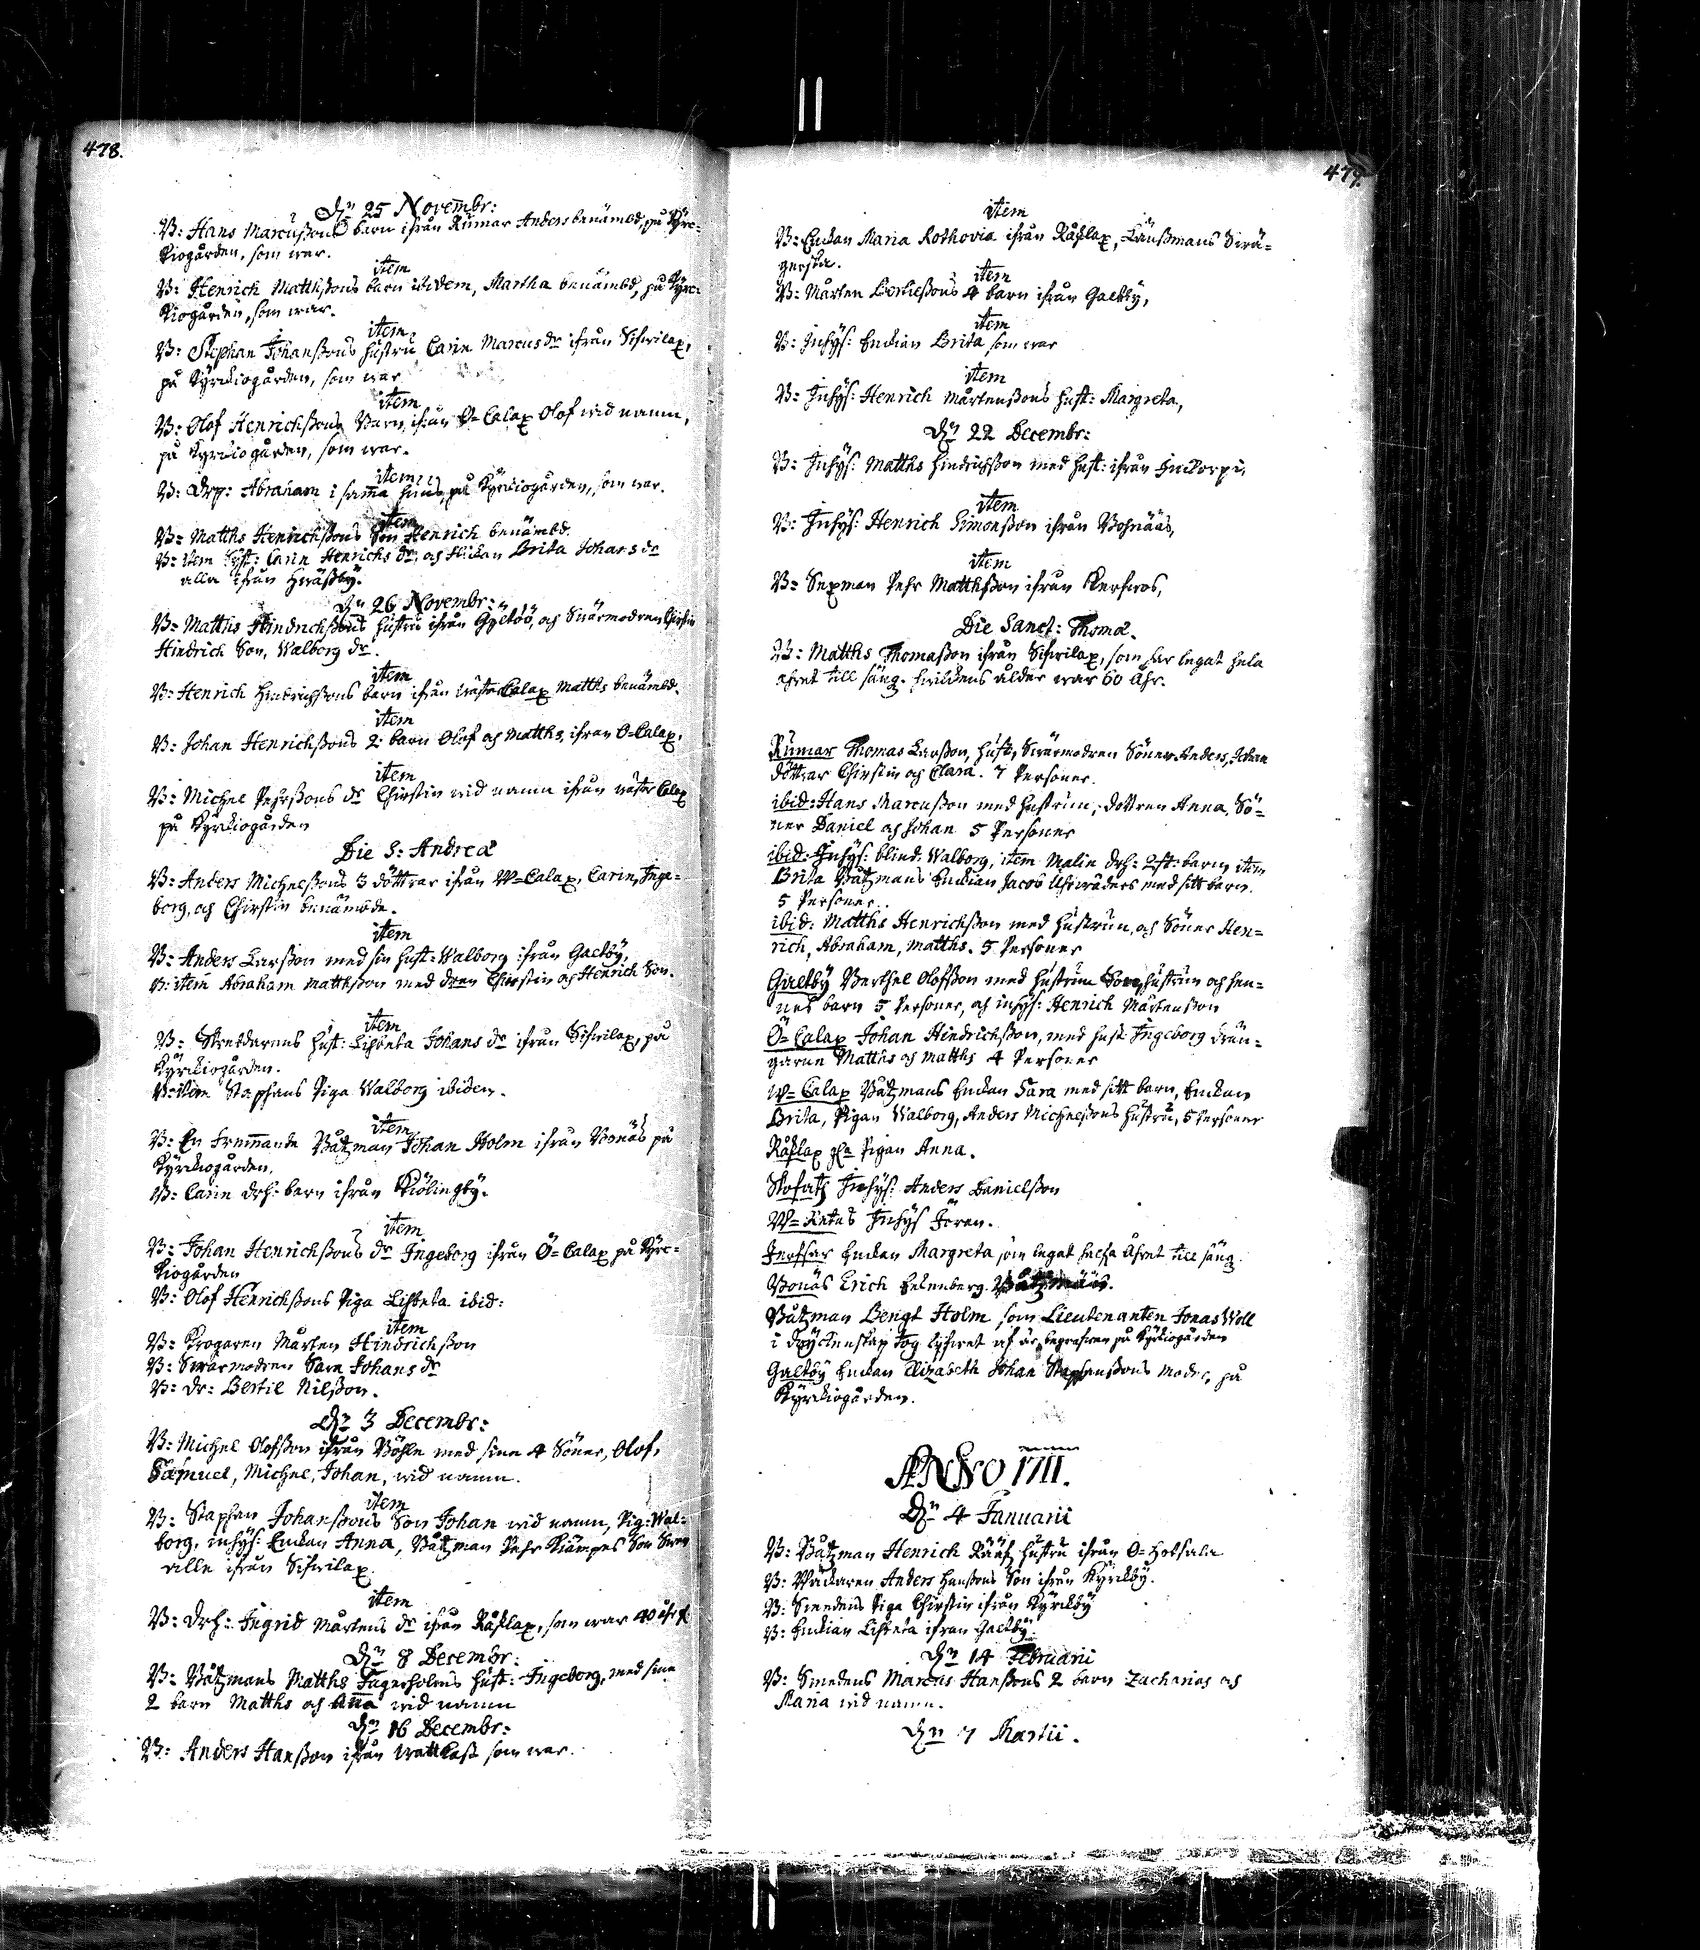 478.
Dn 25 Novembr:
B: Hans Marcußons barn ifrån Rumar Anders benämbd, på Kyrc-
kiogården, som war.
item
B: Henrich Matthßons barn ibidem, Martha benämbd, på Kyrc-
kiogården, som war.
item
B: Stephan Johanßons hustru Carin Marcus dr ifrån Sifwilax,
på Kyrckiogården, som war
item
B: Olof Henrichßons Barn ifrån Ö-Calax Olof wid namn,
på Kyrckiogården, som war.
item
B: Drg: Abraham i samma huus, på Kyrckiogården, som war.
item
B: Matths Henrichßons Son Henrich benämbd.
B: item Hust: Carin Henrichs dr, och Enkan Brita Johans dr
alla ifrån
Dn 26 Novembr:
B: Matths Hindrichßons hustru ifrån Gyltöö, och Swärmodren Chirstin
Hindrich Son, Walborg dr.
item
B: Henrich Hindrichßons barn ifrån Wäster Calax Matths benämbd.
item
B: Johan Henrichßons 2 barn Olof och Matths ifrån Ö-Calax.
item
B: Michel Pehrßons dr Chirstin wid namn ifrån Wäster Calax
på Kyrckiogården
Die S: Andreæ
B: Anders Michelßons 3 döttrar ifrån W-Calax, Carin, Inge-
borg, och Chirstin benämbde.
item
B: Anders Larßon med sin hust: Walborg ifrån Galtby,
B: item Abraham Mattßon med dren Chirstin och Henrich Son.
item
B: Skreddarens hust: Lisbeta Johans dr ifrån Sifwilax, på
Kyrckiogården.
B: item Staphans Piga Walborg ibidem.
item
B: En fremmande Båtzman Johan Holm ifrån Bonäs på
Kyrckiogården.
B: Carin drh: barn ifrån Kiölingby.
item
B: Johan Henrichßons dr Ingeborg ifrån Ö-Calax på Kyrc-
kiogården
B: Olof Henrichßons Piga Lisbeta ibid:
item
B: Krogaren Mårten Hindrichßon
B: Swärmodren Sara Johans dr
B: dr: Bertil Nilßon.
Dn 3 Decembr:
B: Michel Olofßon ifrån Böhle med sina 4 Söner, Olof,
Samuel, Michel, Johan, wid namn.
item
B: Staphan Johanßons Son Johan wid namn, Pig: Wal-
borg, inhys: Enkan Anna, Båtzman Pehr Kiämpes Son
alle ifrån Sifwilax.
item
B: drh: Ingrid Mårtens dr ifrån Råslax, som war 40 åhr
Dn 8 Decembr:
B: Båtzmans Matths Fagerholms hust: Ingeborg, med sina
2 barn Matths och Anna wid namn
Dn 16 Decembr:
B: Anders Hanßon ifrån Wattkast som war.
479.
item
B: Enkan Maria Rothovia ifrån Råslax, Länßmans Swä-
gerska.
item
B: Mårten Bertilßons 4 barn ifrån Galtby,
item
B: Inhys: Enkian Brita som war
item
B: Inhys: Henrich Mårtenßons hust: Margreta,
Dn 22 Decembr:
B: Inhys: Matths Hindrichßon med hust: ifrån
item
B: Inhys: Henrich Simonßon ifrån Bohnääs,
item
B: Sexman Pehr Matthßon ifrån
Die Sanct: Thomæ.
B: Matths Thomaßon ifrån Sifwilax, som har legat hela
åhret till säng. hwilckens ålder war 60 åhr.
Rumar Thomas Larßon, hust, Swärmodren Söner Anders, Johan
döttrar Chirstin och Clara. 7 Personer.
ibid: Hans Marcußon med hustrun, dottren Anna, Sö-
ner Daniel och Johan 5 Personer
ibid: Inhys: blind: Walborg, item Malin drh: 2st: barn, item
Brita Båtzmans Enkian Jacob med sitt barn.
5 Personer.
ibid: Matths Henrichßon med hustrun, och Söner Hen-
rich, Abraham, Matths. 5 Personer
Galtby Berthel Olofßon med hustrun Son hustrun och hen-
nes barn 5 Personer, och inhys: Henrich Mårtenson
Ö-Calax Johan Hindrichßon, med hust Ingeborg drän-
garne Matths och Matths 4 Personer
W-Calax Båtzmans Enkan Sara med sitt barn, Enkan
Brita, Pigan Walborg, Anders Michelßons hustru, 5 Personer
Råslax Pigan Anna.
Inhys: Anders Danielßon
W- Inhys Jören.
Enkan Margreta som legat halfa Åhret till säng.
Bonäs Erich Båtzman.
Båtzman Bengt Holm som Lieutenanten Jonas Woll
i dryckenskap tog lifwet af är begrafwen på Kyrkiogården
Galtby Enkan Elizabeth Johan Staphenßons moder, på
Kyrckiogården.
ANNO 1711.
Dn 4 Januarii
B: Båtzman Henrich Rääf hustru ifrån Ö-
B: Wäckaren Anders Hanßons Son ifrån Kyrckby.
B: Smedens Piga Chirstin ifrån Kyrckby
B: Enkian Lisbeta ifrån Galtby.
Dn 14 Februarii
B: Smedens Marcus Hanßons 2 barn Zacharias och
Maria wid namn.
Dn 7 Martii.